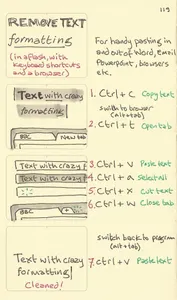 119
REMOVE TEXT
formatting
(in a flash, with
keyboard shortcuts
and a browser)
For handy pasting in
and out of Word, Email
Powerpoint, browsers
etc.
Text with crazy
formatting
1. Ctrl + C Copy text
switch to browser
(alt + tab)
2. Ctrl + t Open tab
BBC New tab
Text with crazy f
Text with crazy f
BBC
3. Ctrl + v Paste text
4. Ctrl + a Select all
5. Ctrl + x Cut text
6. Ctrl + w Close tab
Text with crazy
formatting!
Cleaned!
switch back to program
(alt + tab)
7. Ctrl + v Paste text